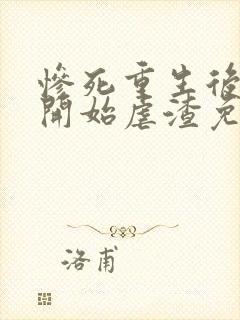 慘死重生後
開始虐渣兔
洛甫